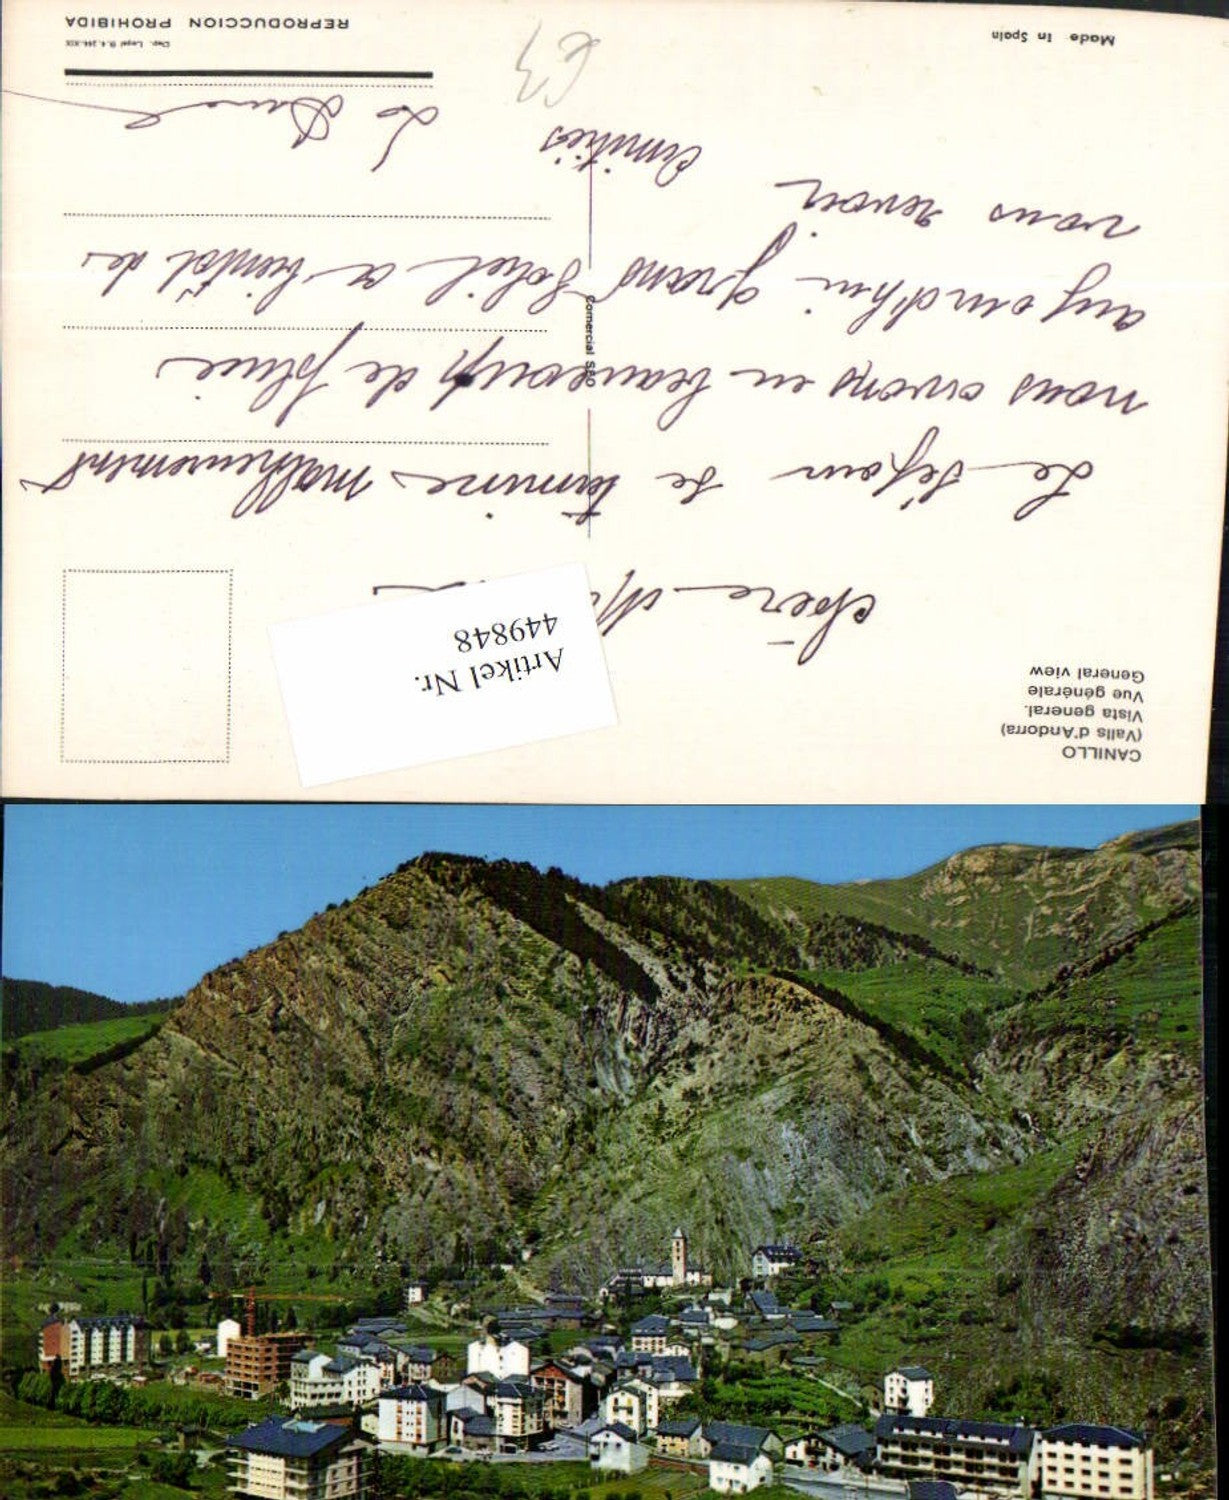 CANILLO
(Valls d'Andorra)
Vista general.
Vue générale
General view
Artikel Nr.
449848
chère
Le séjour se termine malheureusement
nous avons eu beaucoup de pluie
aujourd'hui grand soleil a bientôt de
vous revoir
amitiés
Comercial S
Made In Spain
REPRODUCCION PROHIBIDA